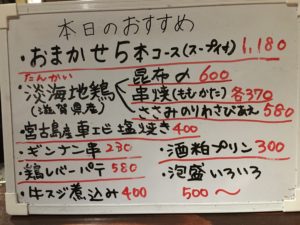 本日のおすすめ
・おまかせ5本コース(スープ付) 1,180
たんかい
・淡海地鶏
(滋賀県産)
昆布〆 600
串焼(ももむかた) 各370
ささみのりわさびあえ 580
・宮古島産車エビ塩焼き 400
・ギンナン串 230
・鶏レバーパテ 580
・牛スジ煮込み 400
・酒粕プリン 300
・泡盛いろいろ
500〜